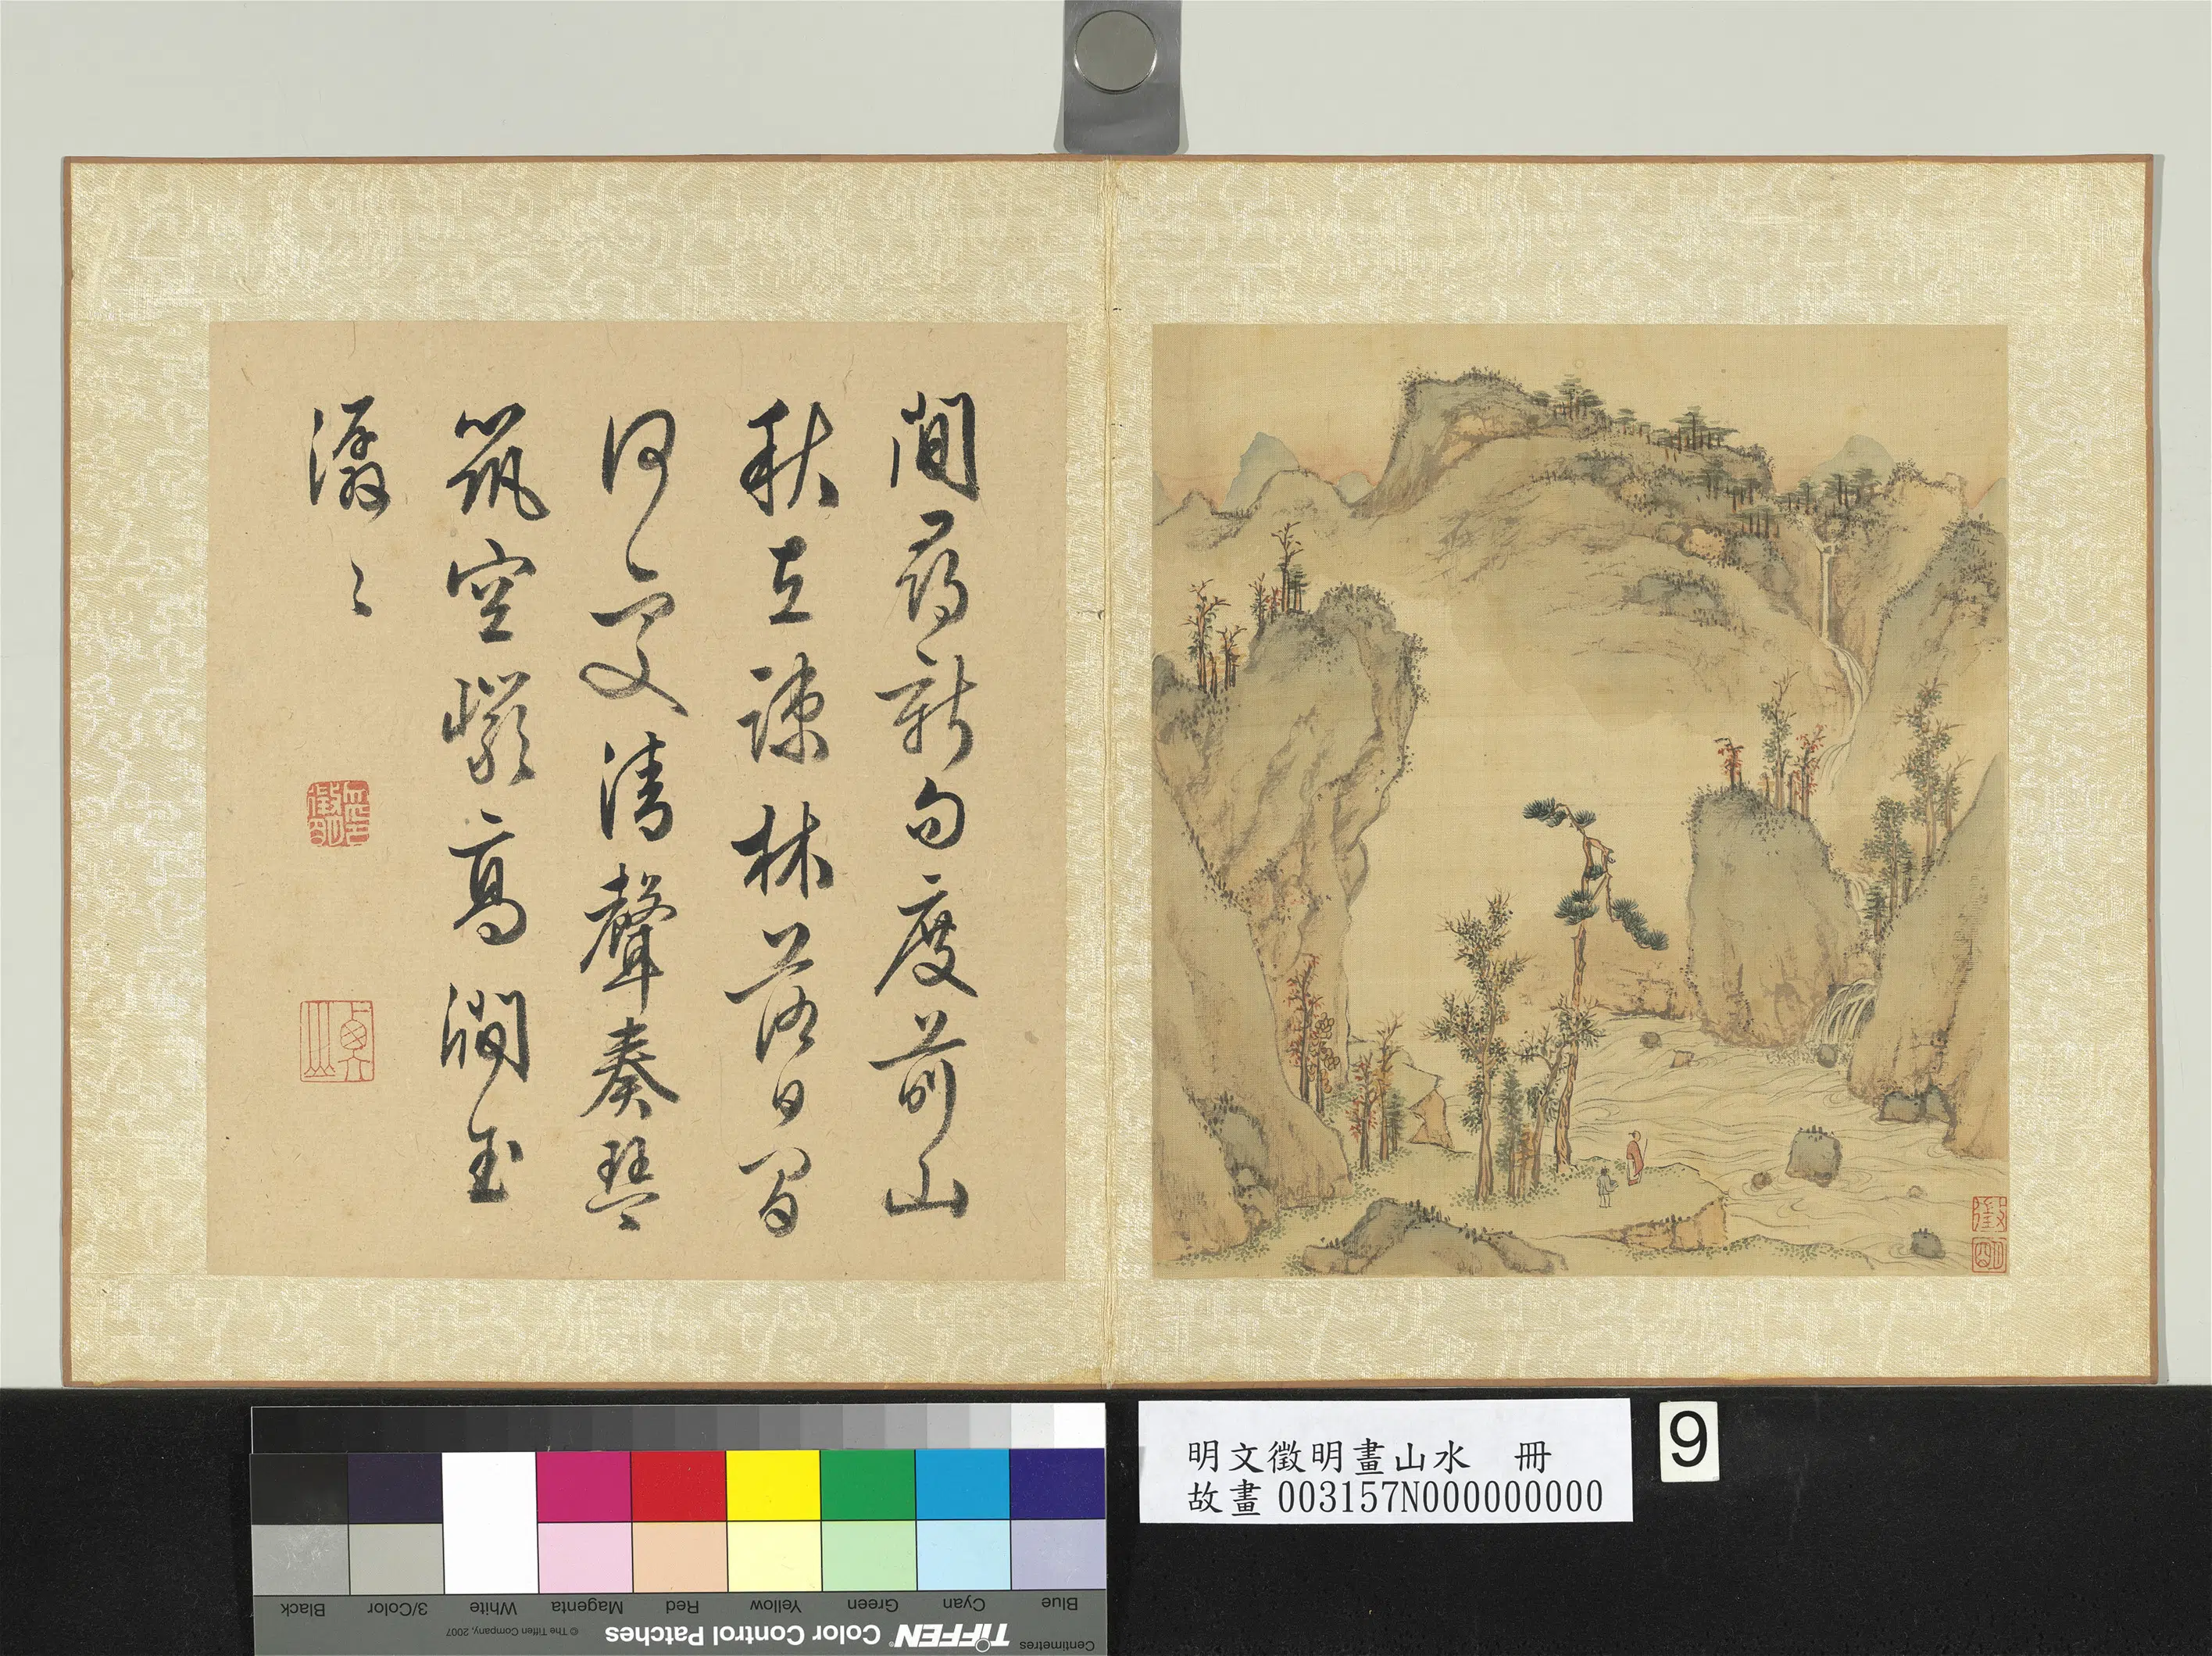 閒尋新句度前山
秋在疎林落日間
何處清聲奏琴
筑空巖高澗玉
潺〻
徵明
明文徵明畫山水 冊
故畫 003157N000000000
9
Black
3/Color
White
Magenta
Red
Yellow
Green
Cyan
Blue
© The Tiffen Company, 2007
TIFFEN® Color Control Patches
Centimetres